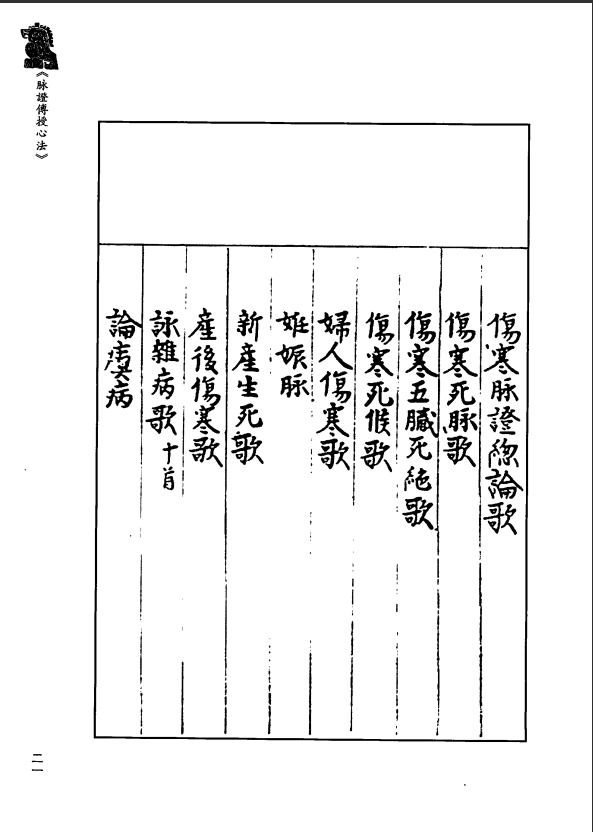 《脉證傳授心法》
傷寒脉證緫論歌
傷寒死脉歌
傷寒五臟死絕歌
傷寒死候歌
婦人傷寒歌
妊娠脉
新產生死歌
產後傷寒歌
詠雜病歌十首
論病
二一